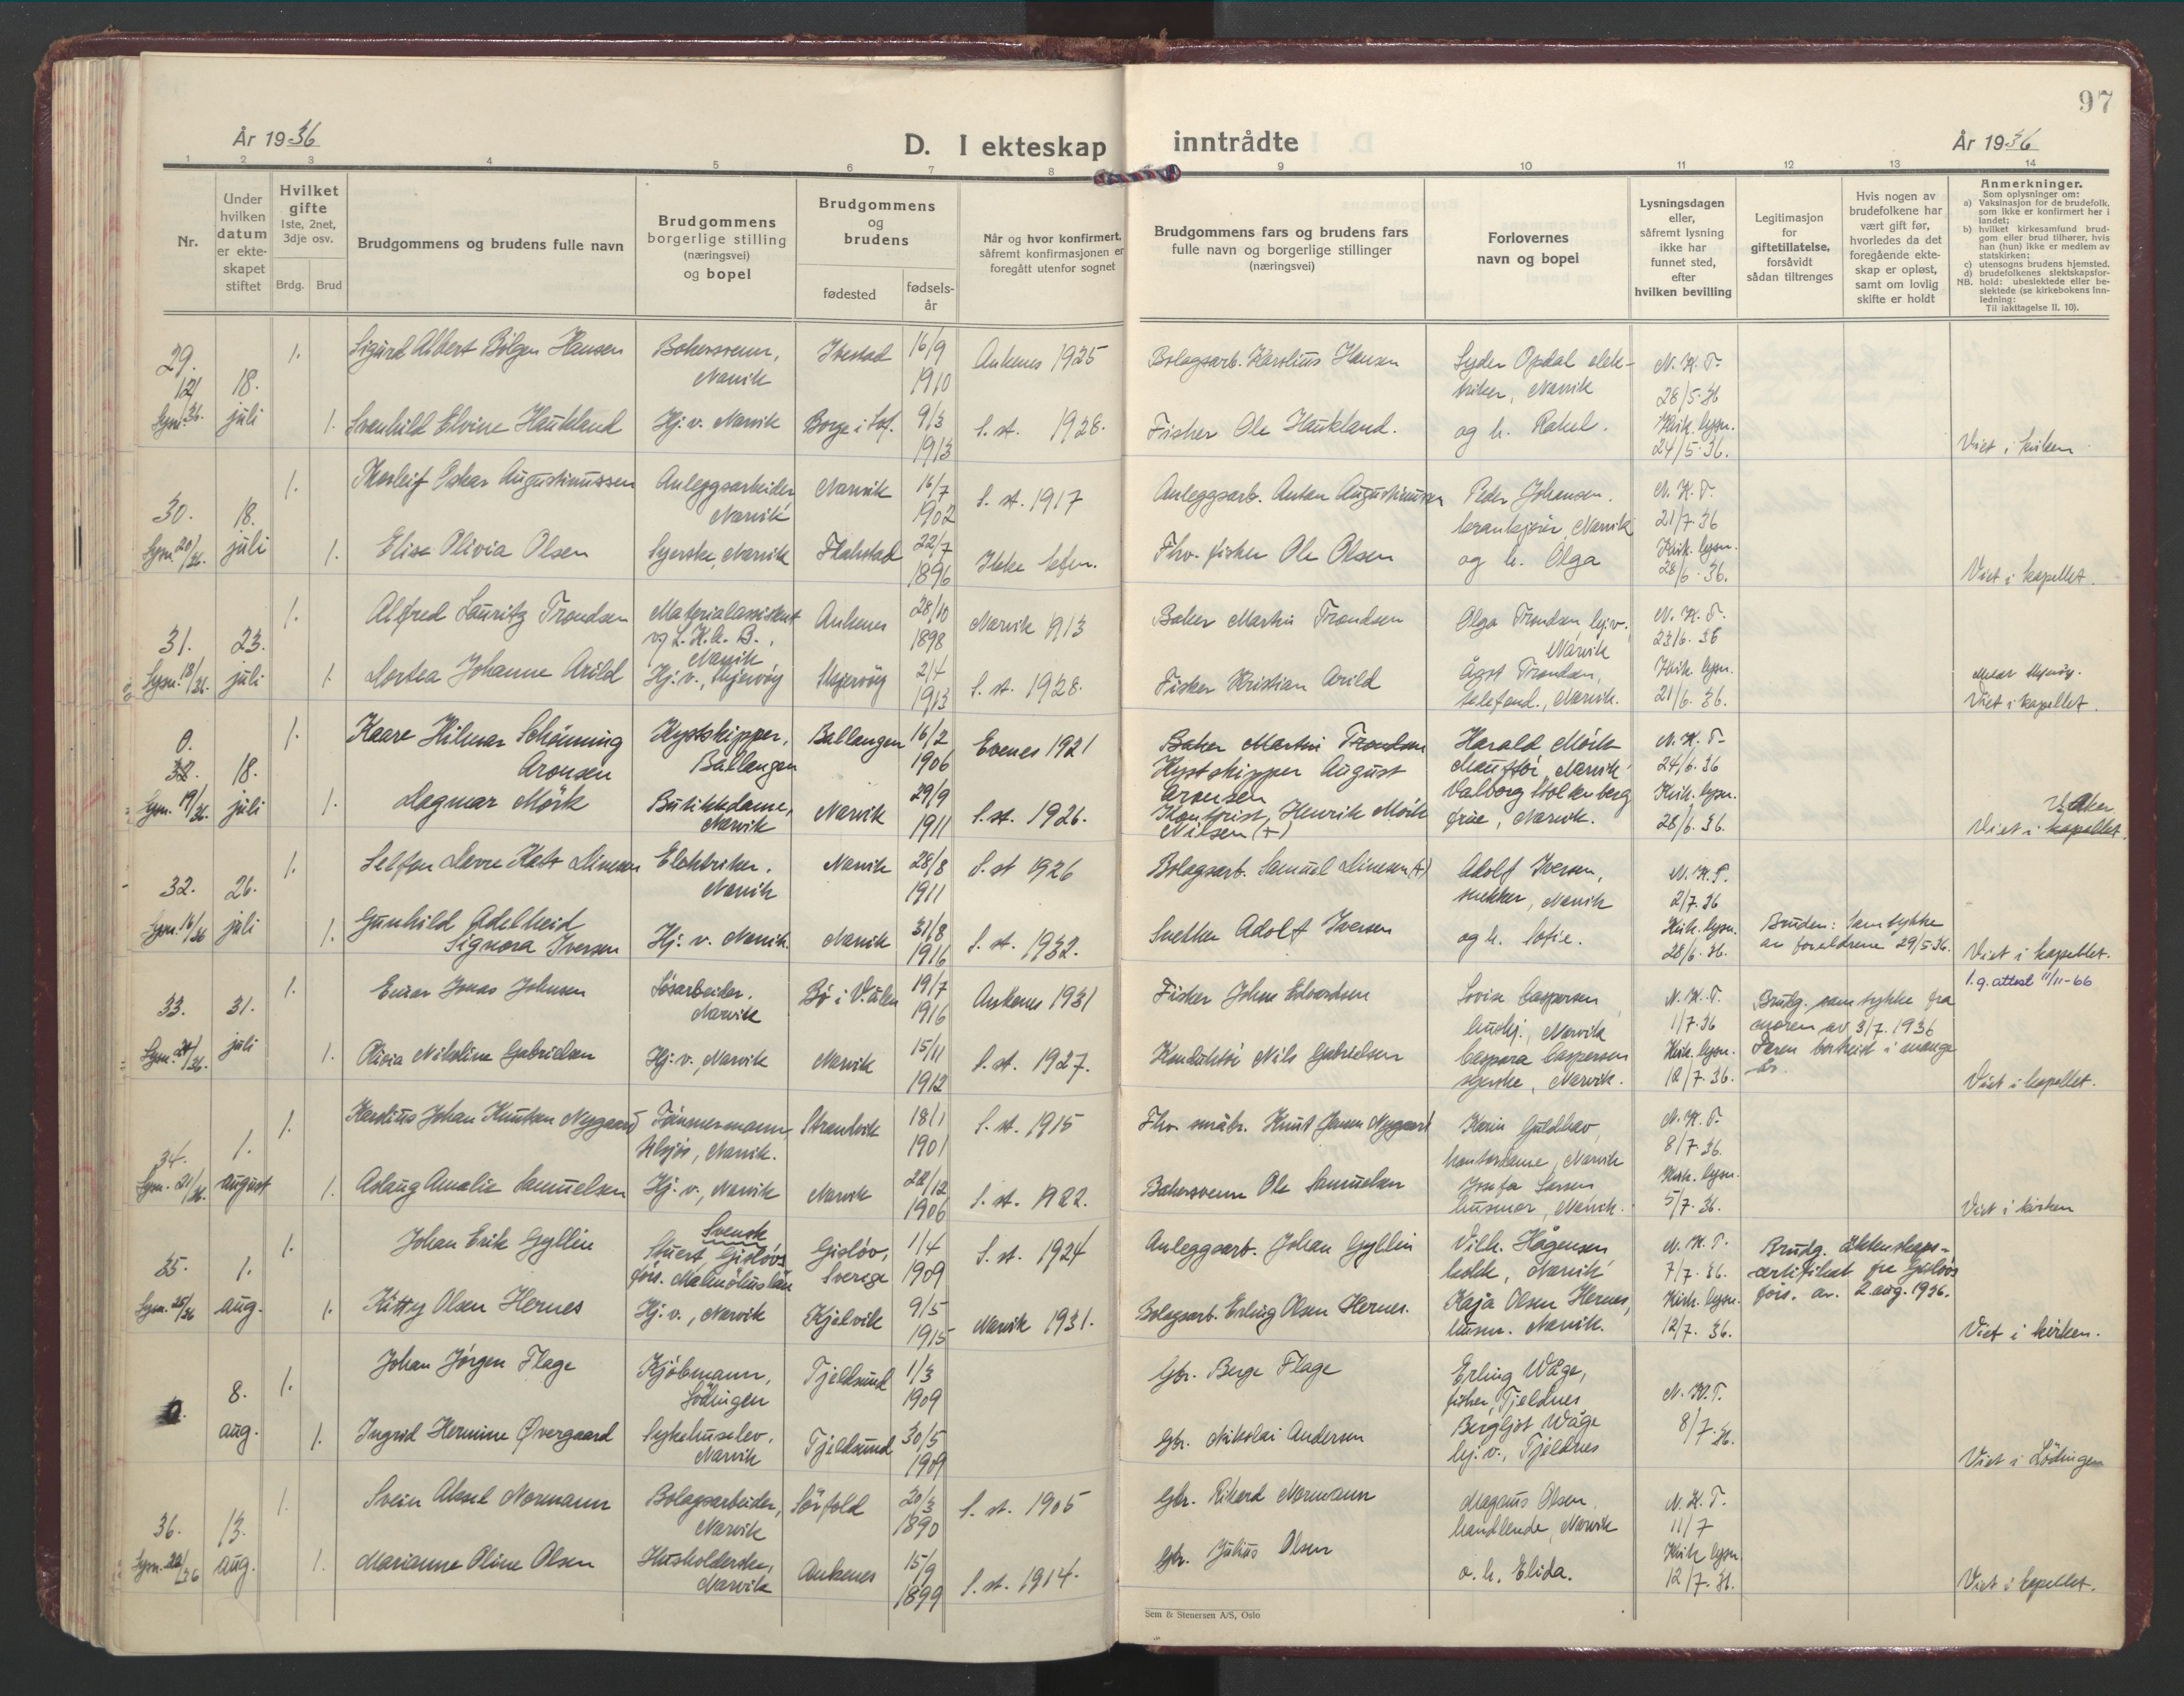 97
År 1936
D. I ekteskap inntrådte
År 1936
1 2 3 4 5 6 7 8 9 10 11 12 13 14
Nr.
Under hvilken datum er ekteskapet stiftet
Hvilket gifte
1ste, 2net, 3dje osv.
Brdg. Brud
Brudgommens og brudens fulle navn
Brudgommens borgerlige stilling (næringsvei) og bopel
Brudgommens og brudens
fødested
fødselsår
Når og hvor konfirmert, såfremt konfirmasjonen er foregått utenfor sognet
Brudgommens fars og brudens fars fulle navn og borgerlige stillinger (næringsvei)
Forlovernes navn og bopel
Lysningsdagen eller, såfremt lysning ikke har funnet sted, efter hvilken bevilling
Legitimasjon for giftetillatelse, forsåvidt sådan tiltrenges
Hvis nogen av brudefolkene har vært gift før, hvorledes da det foregående ekteskap er opløst, samt om lovlig skifte er holdt
Anmerkninger.
Som oplysninger om:
a) Vaksinasjon for de brudefolk, som ikke er konfirmert her i landet;
b) hvilket kirkesamfund brudgom eller brud tilhører, hvis han (hun) ikke er medlem av statskirken;
c) utensogns brudens hjemsted.
d) brudefolkenes slektskapsforhold: ubeslektede eller beslektede (se kirkebokens Innledning:
NB. Til iakttagelse II. 10).
29. 18. juli 1. Sigurd Albert Bölgen Hansen Bakersvenn, Narvik Ibestad 16/9 1910 Ankenes 1925 Bolagsarb. Karolius Hansen Opdal elektriker, Narvik N. K. T. 28/5 36
1. Svanhild Elvine Haukland Hj. v. Narvik Borge i Lof. 9/3 1913 S. st. 1928. Fisker Ole Haukland. og h. Rakel. Kirk. lysn. 24/5 36. Viet i kirken
30. 18. juli 1. Thorleif Oskar Augustinussen Anleggsarbeider Narvik Narvik 16/7 1902 S. st. 1917 Anleggsarb. Anton Augustinussen Peder Johansen. Narvik N. K. T. 21/7 36
Lysn. 20/36. 1. Elise Olivia Olsen Syerske, Narvik Flakstad 22/7 1896 Ikke kofn. Fhv. fisker Ole Olsen og h. Olga Kirk. lysn. 28/6 36. Viet i kapellet.
31. 23. juli 1. Alfred Lauritz Trondsen Materialassistent v/ L.K.A.B., Narvik Ankenes 28/10 1898 Narvik 1913 Baker Martin Trondsen Olga Trondsen hj.v. Narvik N. K. T. 23/6. 36
Lysn. 18/36. 1. Dortea Johanne Arild Hj. v., Skjervöy Skjervöy 2/4 1913 S. st. 1928. Fisker Kristian Arild Ågot Trondsen, telefond., Narvik. Kirk. lysn. 21/6. 36. Viet i kapellet.
0. 18. juli 1. Kaare Hilmar Schönning Aronsen Kystskipper, Ballangen Ballangen 16/2 1906 Evenes 1921 Baker Martin Trondsen Kystskipper August Aronsen Harald Mörk Narvik N. K. T. 24/6. 36
Lysn. 19/36. 1. Dagmar Mörk Butikkdame, Narvik Narvik 29/9 1911 S. st. 1926. Kontorist, Henrik Mörk Nilsen (+) Valborg Stoltenberg frue, Narvik. Kirk. lysn. 28/6. 36. Viet i kapellet.
32. 26. juli 1. Simensen Elektriker. Narvik Narvik 28/8 1911 S. st 1926 Bolagsarb. Samuel Simensen (+) Adolf Iversen, snekker, Narvik N. K. T. 2/7. 36
Lysn. 16/36 1. Gunhild Adelheid Signora Iversen Hj. v. Narvik. Narvik 31/8 1916 S. st. 1932. Snekker Adolf Iversen og h. Sofie. Kirk. lysn. 28/6. 36. Bruden: Samtykke av foreldrene 29/5 36. Viet i kapellet.
33. 31. juli 1. Einar Jonas Johnsen Narvik Bö i V.ålen 19/7 1916 Ankenes 1931 Fisker Johne Edvardsen Lovise Caspersen hushj., Narvik N. K. T. 1/7. 36 Brudg. samtykke fra moren av 3/7. 1936 Faren bortreist i mange år. 1.g. attest 11/11-66
1. Olivia Nikoline Gabrielsen Hj. v., Narvik Narvik 15/11 1912 S. st. 1927. Konduktör Nils Gabrielsen Caspara Caspersen syerske, Narvik. Kirk. lysn. 12/7. 36. Viet i kapellet.
34. 1. august 1. Karolius Johan Knutsen Nygaard Tömmermann, Narvik. Strandvik 18/1 1901 S. st. 1915 Fhv. småbr. Knut Jansen Nygaard Karin Guldhav, kontordame, Narvik N. K. T. 8/7. 36.
Lysn. 21/36. 1. Aslaug Amalie Samuelsen Hj. v., Narvik Narvik 22/12 1906 S. st. 1922. Bakersvenn Ole Samuelsen Josefa Larsen husmor, Narvik. Kirk. lysn. 5/7. 36. Viet i kirken
35. 1. aug. 1. Johan Erik Gyllin Svensk Stuert, Gislövs förs. Malmöhus län Gislöv, Sverige 1/4 1909 S. st. 1924 Anleggsarb. Johan Gyllin Vilh. Hågensen, kokk, Narvik N. K. T. 7/7. 36. Brudg. äktenskapscertifikat fra Gislövs förs. av. 2 aug. 1936.
Lysn. 25/36 1. Kitty Olsen Hernes Hj. v., Narvik Kjelvik 9/5 1915 Narvik 1931. Bolagsarb. Erling Olsen Hernes. Kaja Olsen Hernes, husm. Narvik. Kirk. lysn. 12/7. 36. Viet i kirken.
0. 8. aug. 1. Johan Jörgen Flage Kjöbmann, Lödingen Tjeldsund 1/3 1909 Gbr. Berge Flage Erling Wåge, fisker, Tjeldnes N. K. T. 8/7 36.
1. Ingrid Hermine Øvergaard Sykehuselev. Narvik Tjeldsund 30/5 1909 Gbr. Nikolai Andersen Bergljot Wåge hj. v., Tjeldnes Viet i Lödingen
36. 13. aug. 1. Svein Aksel Normann Bolagsarbeider, Narvik Sörfold 20/3 1890 S. st. 1905 Gbr. Rikard Normann Magnus Olsen. handlende, Narvik N. K. T. 11/7
1. Marianne Oline Olsen Husholderske, Narvik Ankenes 15/9 1899 S. st. 1914. Gbr. Julius Olsen o. h. Elida. Kirk lysn. 12/7. 36. Viet i kapellet.
Sem & Stenersen A/S, Oslo